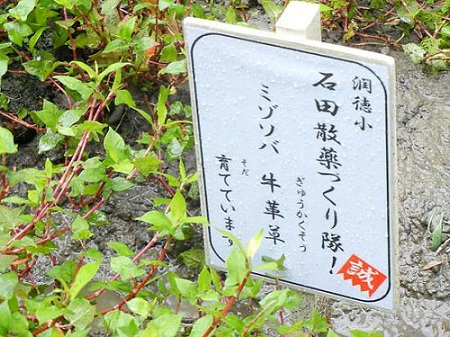 潤徳小
石田散薬づくり隊!
ミゾソバ 牛革草
ぎゅうかくそう
育てています
そだ
誠